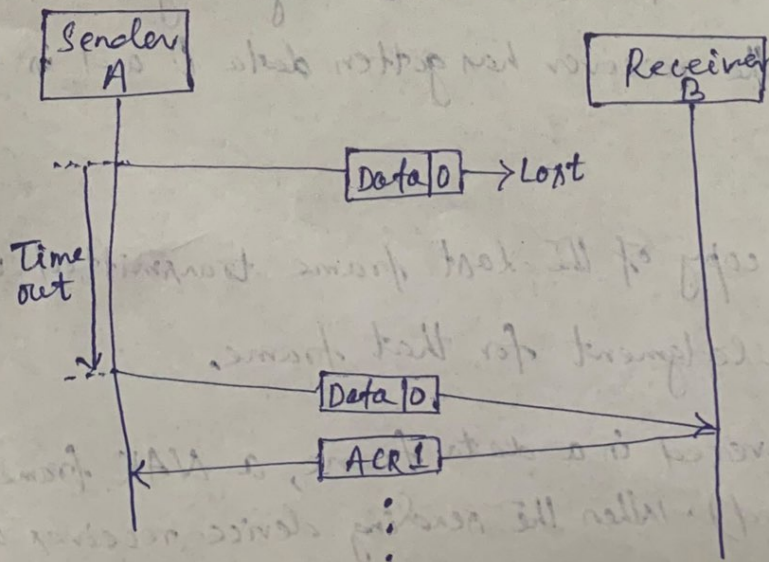 Sender
A
Receiver
B
Data 0 → Lost
Time
out
Data 0
ACK 1